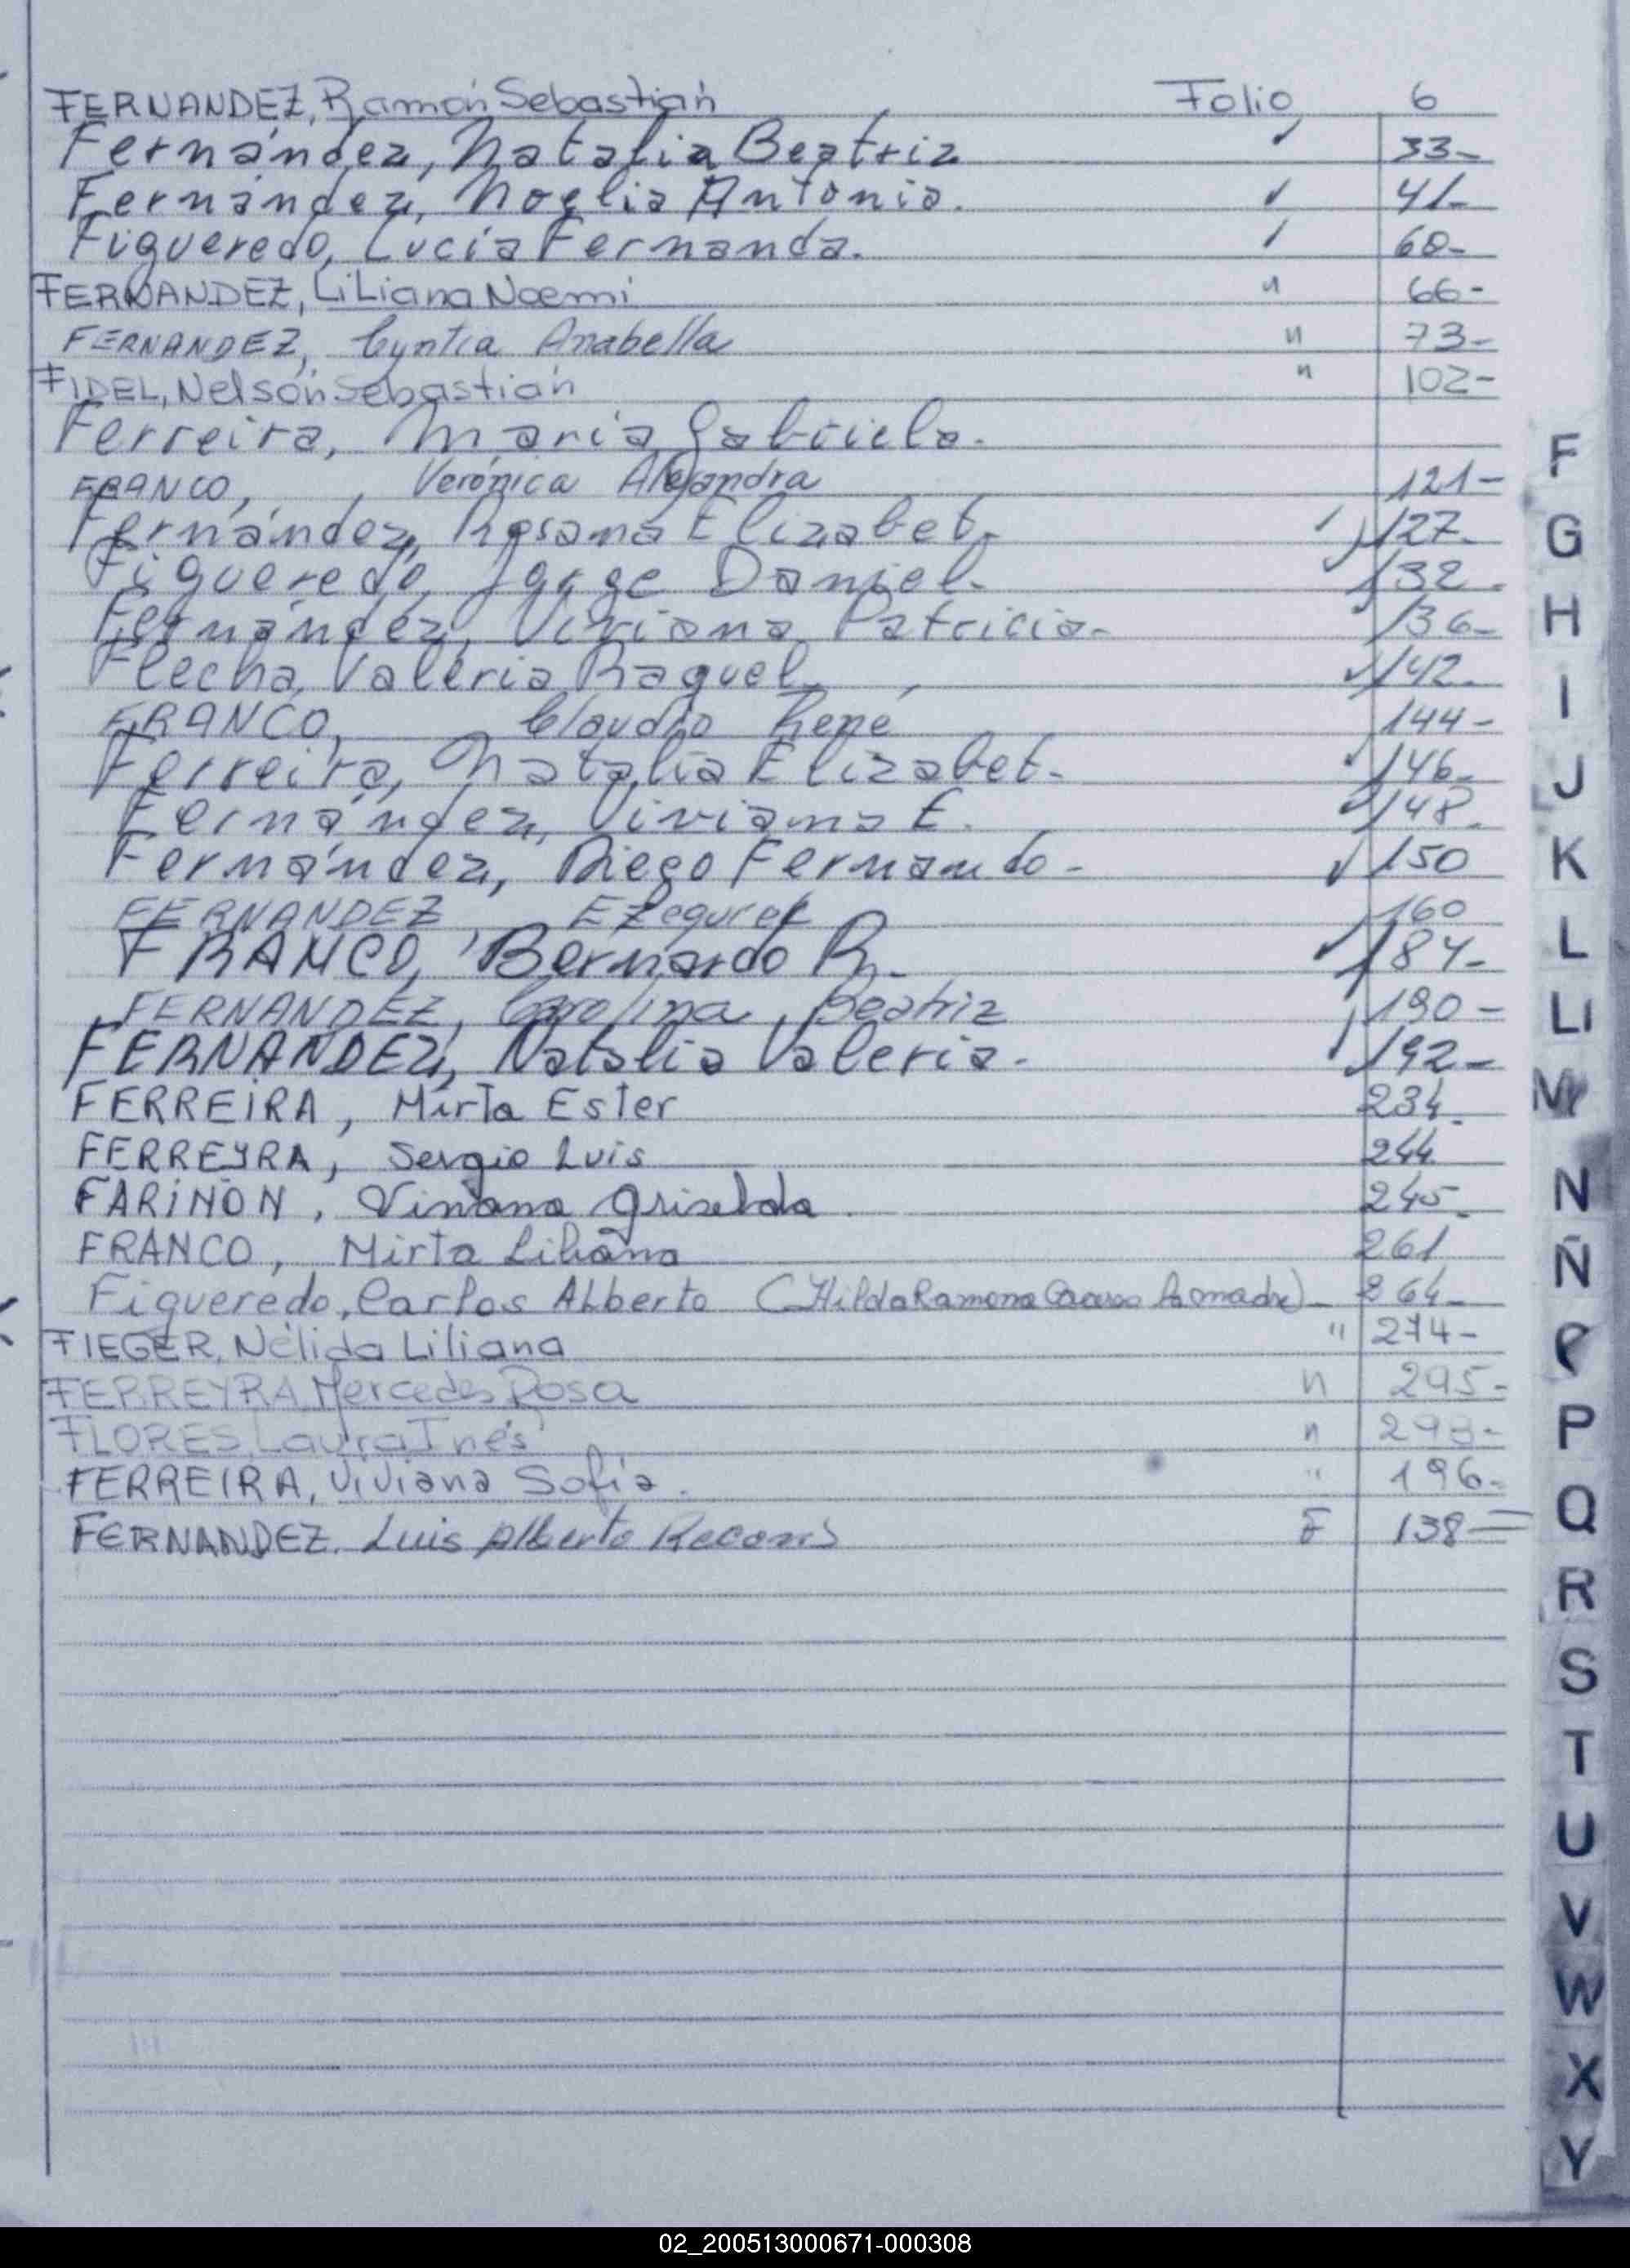 FERNANDEZ, Ramón Sebastián Folio 6
Fernández, Natalia Beatriz ✓ 33-
Fernández, Noelia Antonia. ✓ 41-
Figueredo, Lucía Fernanda. ✓ 60-
FERNANDEZ, LiLiana Noemi " 66-
FERNANDEZ, Cyntia Anabella " 73-
FIDEL, Nelson Sebastián " 102-
Ferreira, María Gabriela.
FRANCO, Verónica Alejandra 121-
Fernández, Rosana Elizabet. 127-
Figueredo, Jorge Daniel. 132-
Fernández, Viviana Patricia- 136-
Flecha, Valeria Raquel 142-
FRANCO, Claudio René 144-
Ferreira, Natalia Elizabet- 146-
Fernández, Viviana E. 148-
Fernández, Diego Fernando- 150
FERNANDEZ Ezequiel 160
FRANCO, Bernardo R- 184-
FERNANDEZ, Carolina Beatriz 190-
FERNANDEZ, Natalia Valeria- 192-
FERREIRA, Mirta Ester 234-
FERREYRA, Sergio Luis 244
FARIÑON, Viviana Griselda 245-
FRANCO, Mirta Liliana 261
Figueredo, Carlos Alberto (Hilda Ramona madre)- 264-
FIEGER, Nélida Liliana " 274-
FERREYRA Mercedes Rosa " 295-
FLORES, Laura Inés " 298-
FERREIRA, Viviana Sofia. " 196-
FERNANDEZ. Luis Alberto F 138=
F
G
H
I
J
K
L
Ll
M
N
Ñ
P
Q
R
S
T
U
V
W
X
Y
02_200513000671-000308